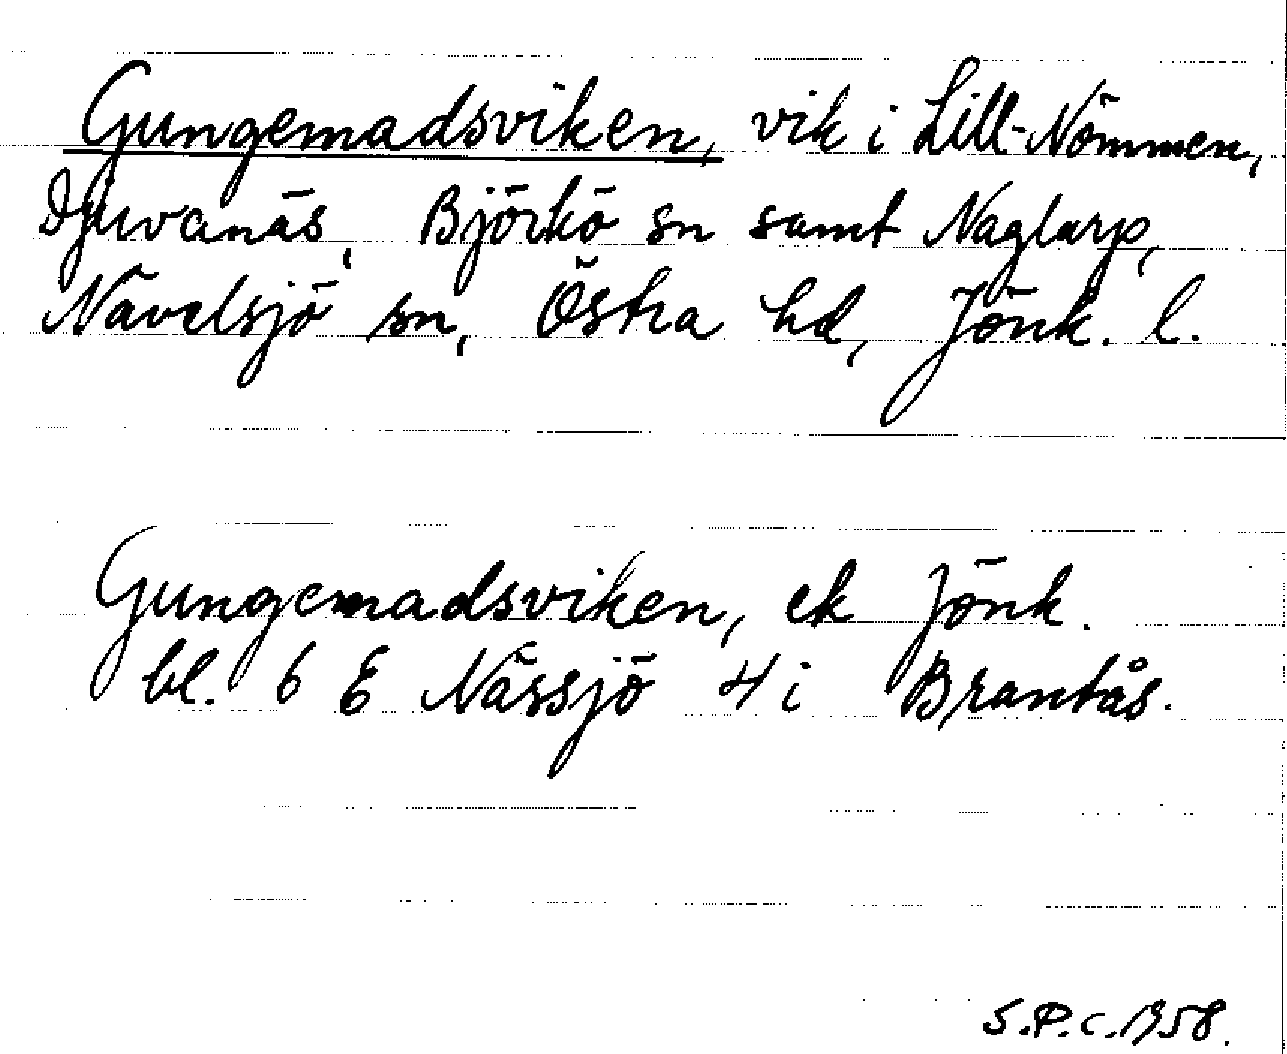 Gungemadsviken, vik i Lill-Nömmen,
Djuvanäs, Björkö sn samt Naglarp,
Nävelsjö sn, Östra hd, Jönk. l.
Gungemadsviken, ek Jönk.
bl. 6 E Nässjö 4 i Brantås.
S.P.C. 1958.